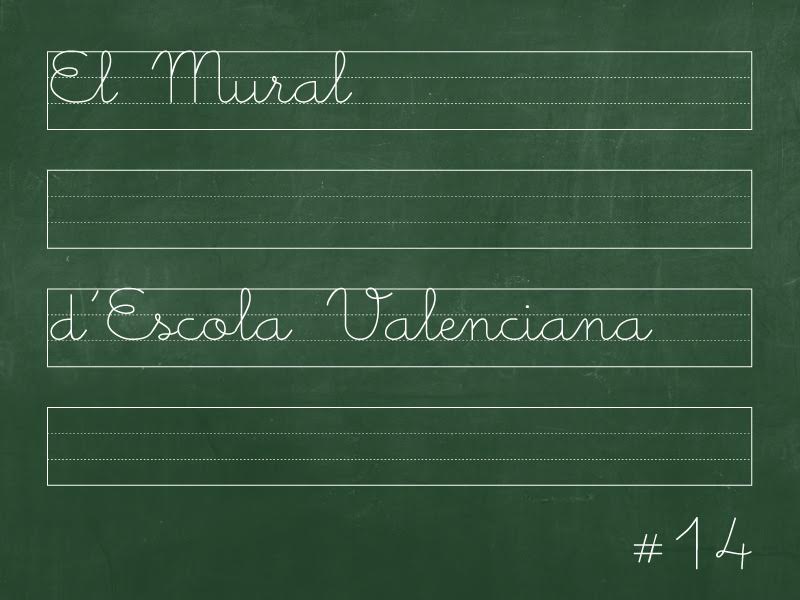 El Mural
d'Escola Valenciana
#14